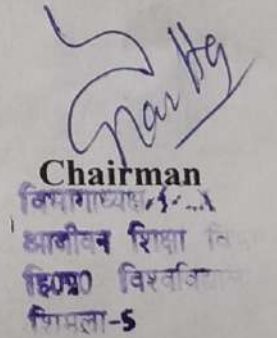 Chairman
विभागाध्यक्ष
आजीवन शिक्षा
हि०प्र० विश्वविद्यालय
शिमला-5